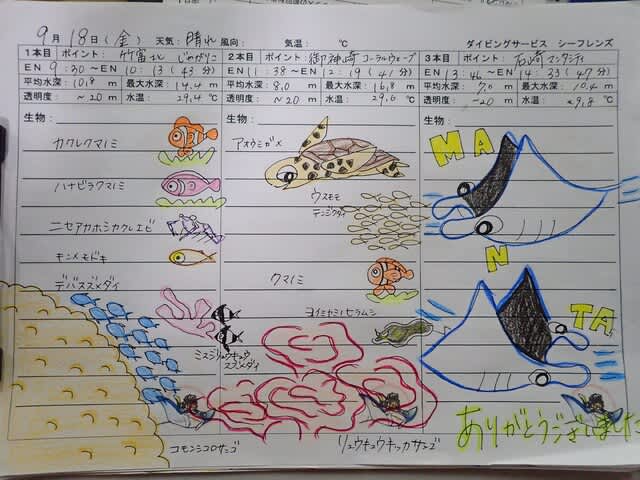 9月18日(金) 天気:晴れ 風向: 気温: ℃ ダイビングサービス シーフレンズ
1本目 ポイント:竹富北 じゃがりこ
EN 9:30〜EN 10:13(43分)
平均水深:10.8 m 最大水深:14.4 m
透明度:〜20 m 水温:29.4 ℃
生物:
カクレクマノミ
ハナビラクマノミ
ニセアカホシカクレエビ
キンメモドキ
デバスズメダイ
ミスジリュウキュウ
スズメダイ
コモンシコロサンゴ
2本目 ポイント:御神崎 コーラルウェーブ
EN 11:38〜EN 12:19(41分)
平均水深:8.0 m 最大水深:16.8 m
透明度:〜20 m 水温:29.6 ℃
生物:
アオウミガメ
ウスモモ
テンジクダイ
クマノミ
ヨイミヤミノヒラムシ
リュウキュウキッカサンゴ
3本目 ポイント:石崎 マンタシティ
EN 13:46〜EN 14:33(47分)
平均水深:7.0 m 最大水深:10.4 m
透明度:〜20 m 水温:29.8 ℃
生物:
MANTA
ありがとうございました